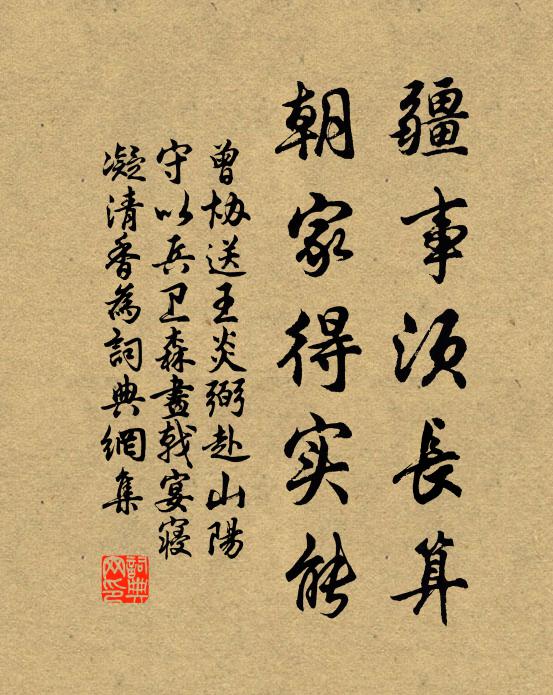 疆事须長算
朝家得实能
曾协送王炎弼赴山陽
守以兵卫森畫戟宴寝
凝清香為詞典網集
詞典网印